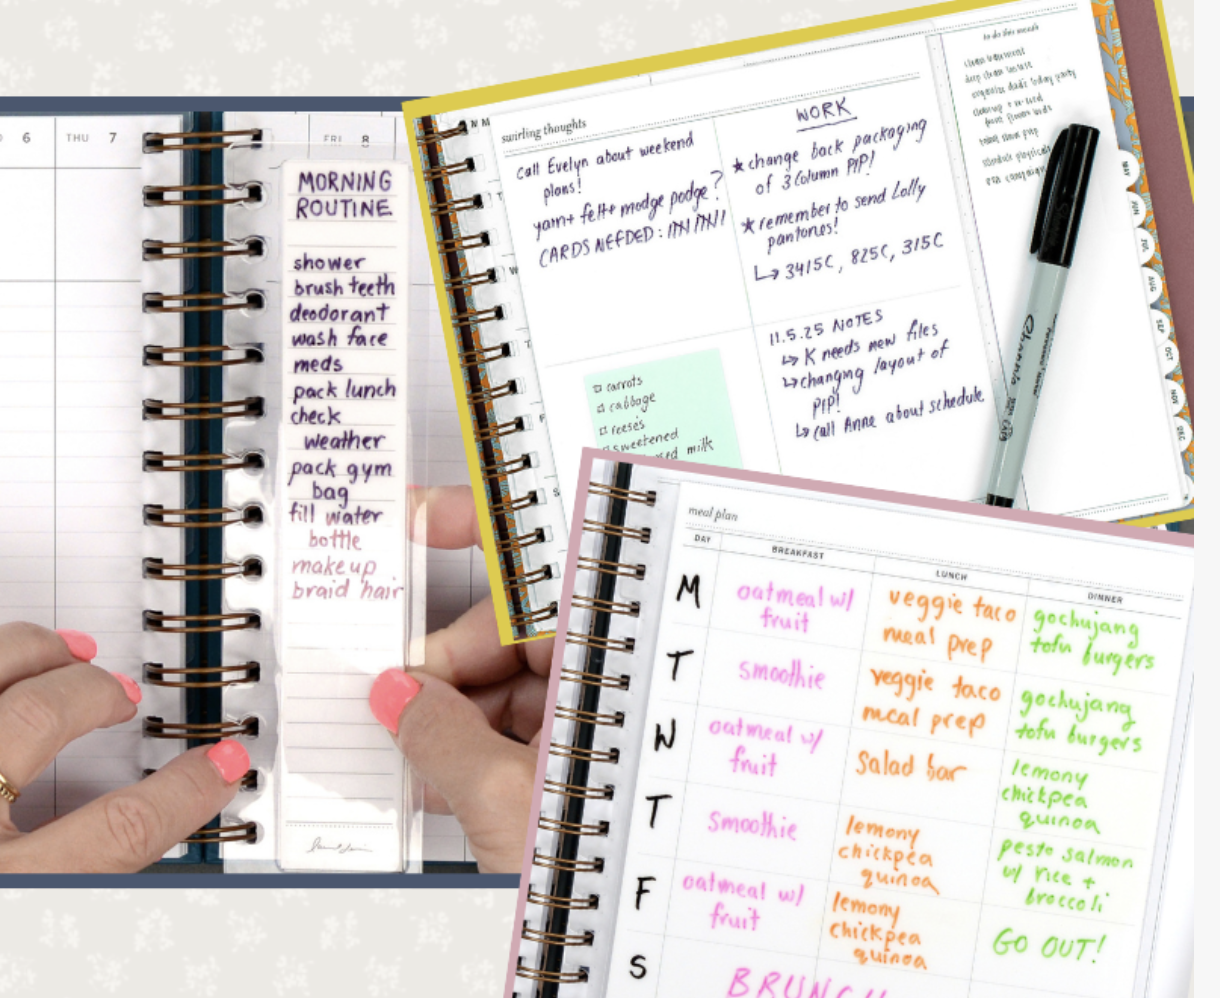 6
THU 7
FRI 8
MORNING
ROUTINE
shower
brush teeth
deodorant
wash face
meds
pack lunch
check
weather
pack gym
bag
fill water
bottle
makeup
braid hair
swirling thoughts
call Evelyn about weekend
plans!
yarn + felt + modge podge?
CARDS NEEDED:
WORK
★ change back packaging
of 3 Column PIP!
★ remember to send Lolly
pantones!
↳ 3415C, 825C, 315C
11.5.25 NOTES
↳ K needs new files
↳ changing layout of
PIP!
↳ Call Anne about schedule
☐ carrots
☐ cabbage
☐ reese's
☐ sweetened
milk
to do this month
deep clean
organize dad's bday party
schedule physicals
MAY
JUN
JUL
AUG
SEP
OCT
NOV
DEC
Sharpie
meal plan
DAY BREAKFAST LUNCH DINNER
M
oatmeal w/
fruit
veggie taco
meal prep
gochujang
tofu burgers
T
smoothie
veggie taco
meal prep
gochujang
tofu burgers
W
oatmeal w/
fruit
Salad bar
lemony
chickpea
quinoa
T
smoothie
lemony
chickpea
quinoa
pesto salmon
w/ rice +
broccoli
F
oatmeal w/
fruit
lemony
chickpea
quinoa
GO OUT!
S
BRUNCH